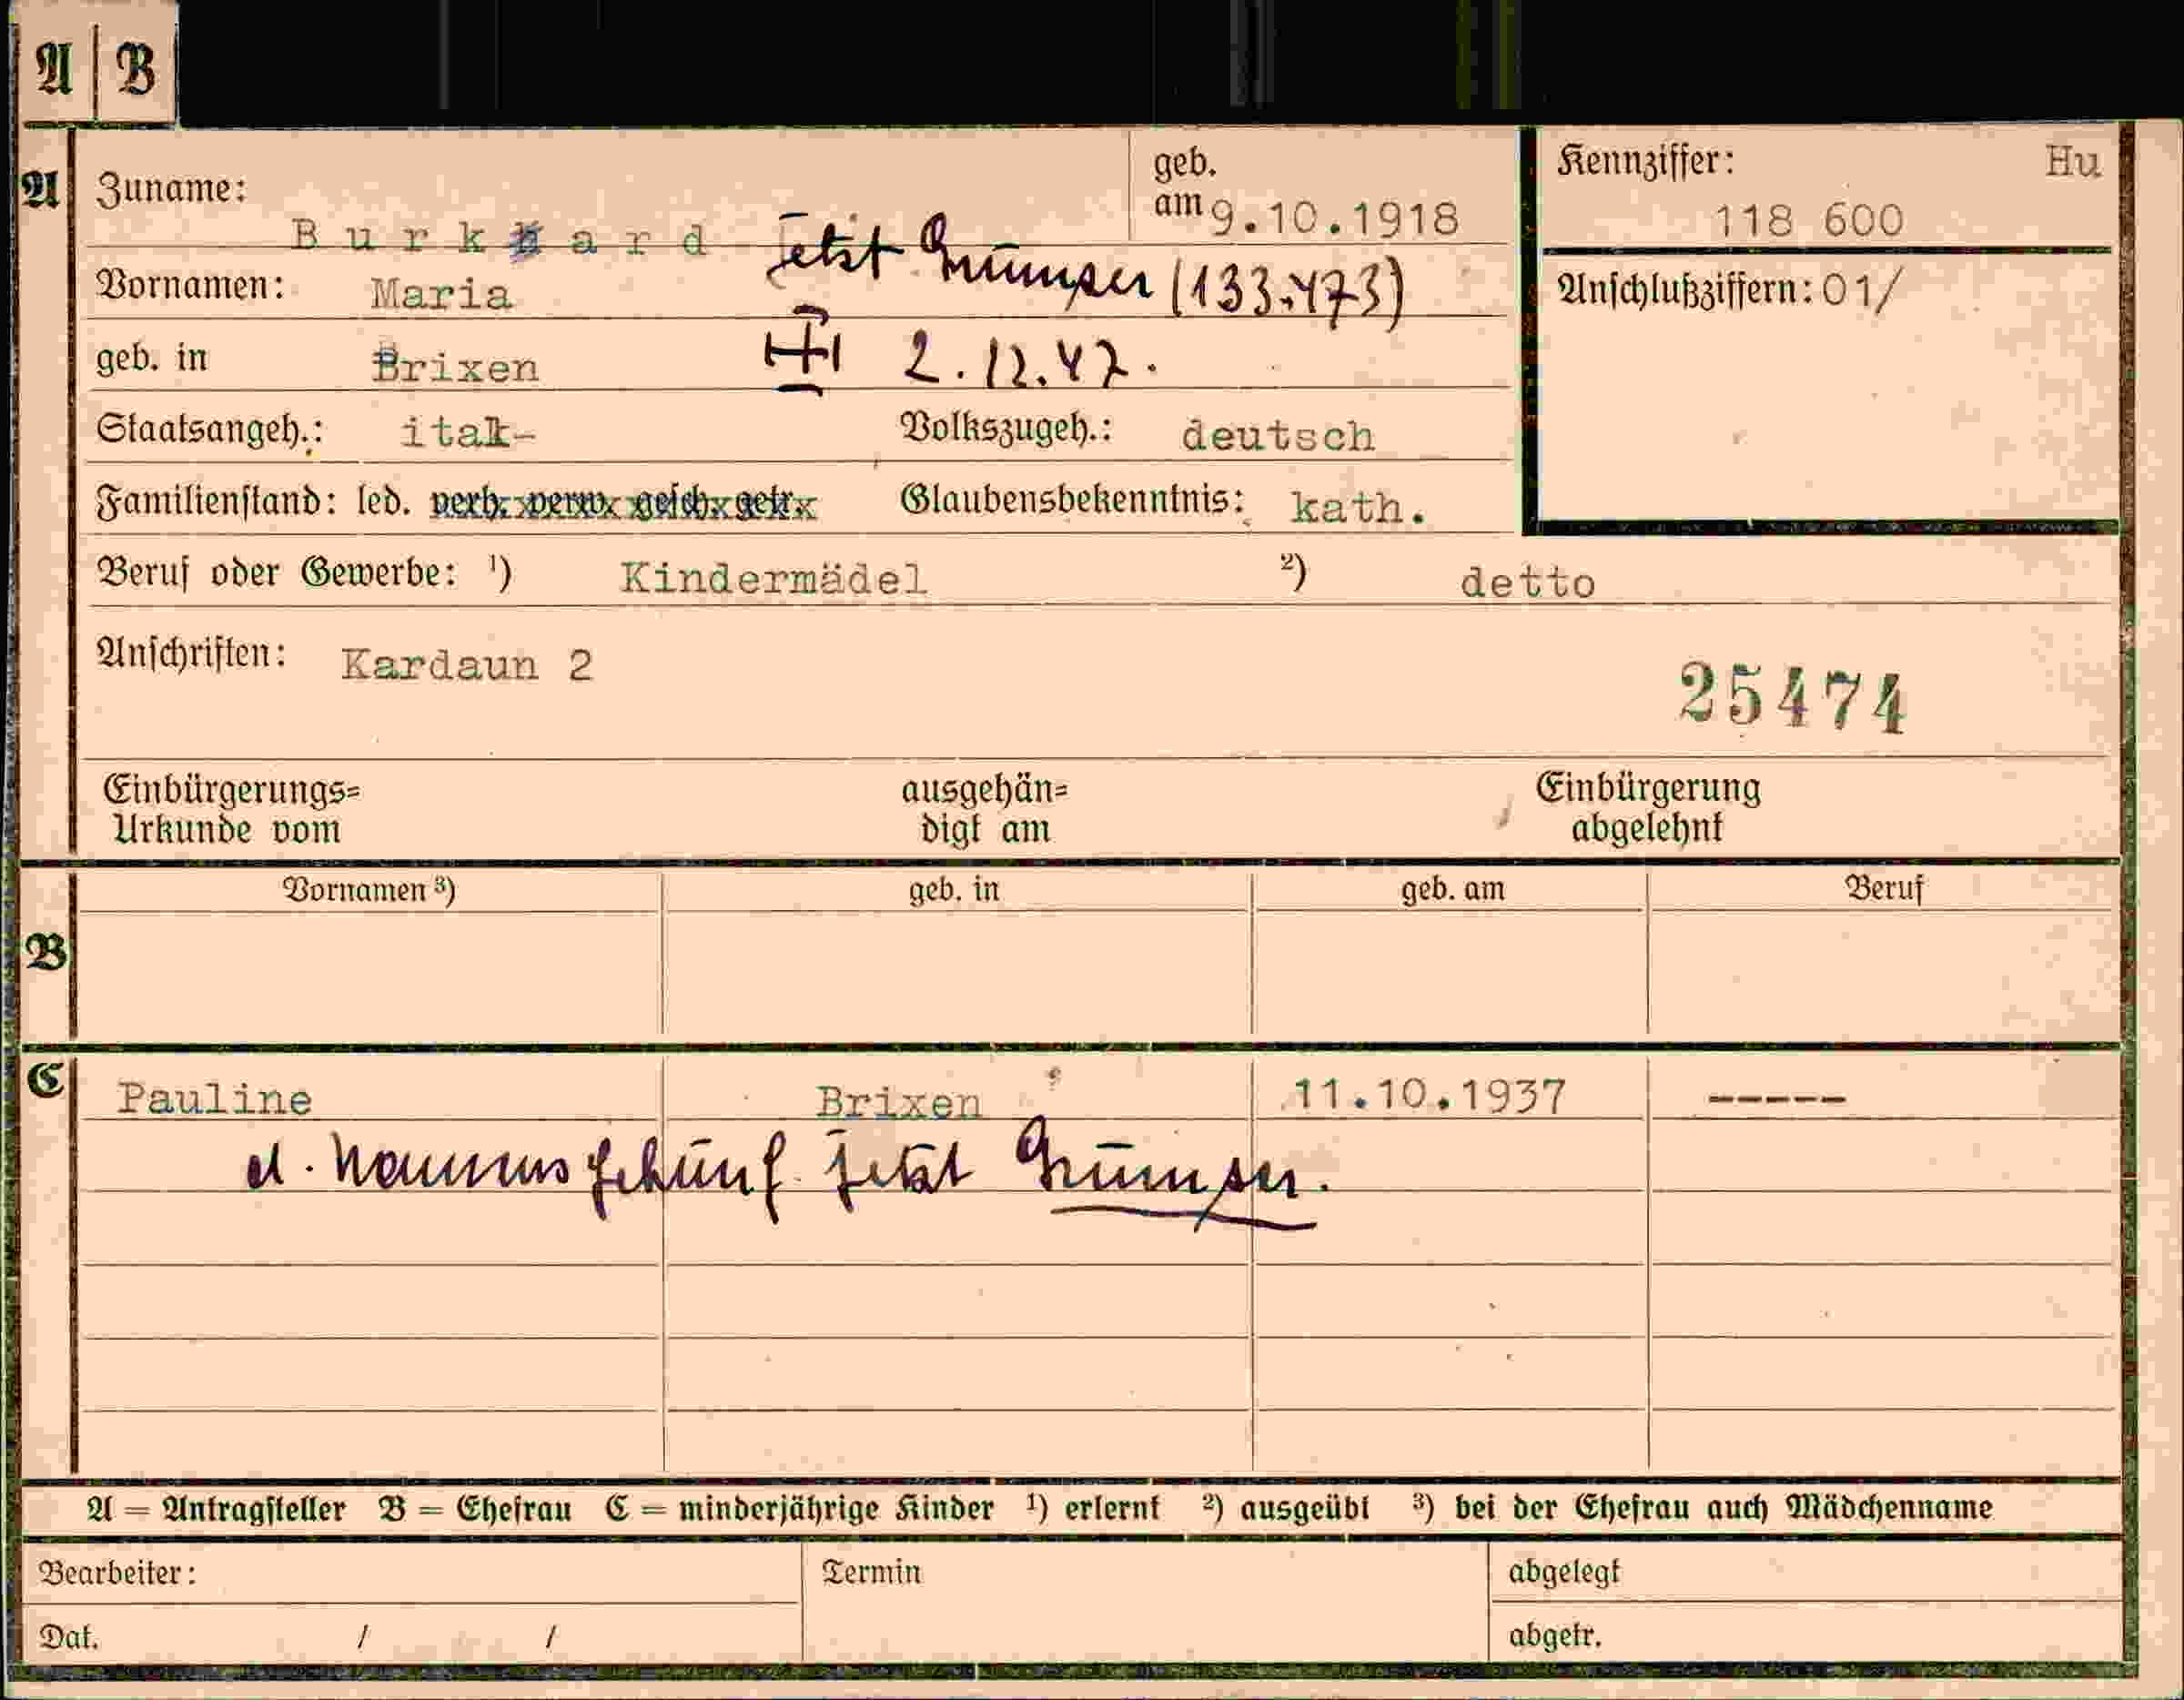 A B
A Zuname: Burkhard jetzt Grumser (133.473)
geb. am 9.10.1918
Kennziffer: Hu
118 600
Vornamen: Maria
Anschlußziffern: 01/
geb. in Brixen 2.12.47.
Staatsangeh.: ital- Volkszugeh.: deutsch
Familienstand: led. verh. verw. gesch. getr. Glaubensbekenntnis: kath.
Beruf oder Gewerbe: ¹) Kindermädel ²) detto
Anschriften: Kardaun 2
25474
Einbürgerungs= Urkunde vom
ausgehän= digt am
Einbürgerung abgelehnt
Vornamen ³) geb. in geb. am Beruf
B
C Pauline Brixen 11.10.1937 -----
d. jetzt Grumser.
A = Antragsteller B = Ehefrau C = minderjährige Kinder ¹) erlernt ²) ausgeübt ³) bei der Ehefrau auch Mädchenname
Bearbeiter: Termin abgelegt
Dat. / / abgetr.